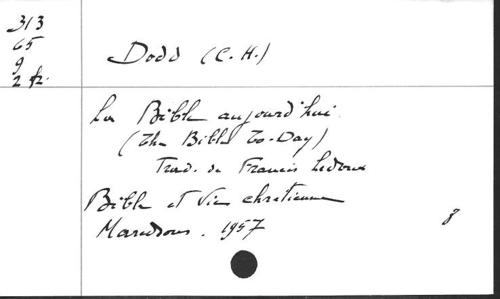 313
65
9
2 fr.
Dodd (C.H.)
La Bible aujourd'hui
(The Bible To-Day)
Trad. de Francis Ledoux
Bible et Vie chrétienne
Maredsous. 1957
8